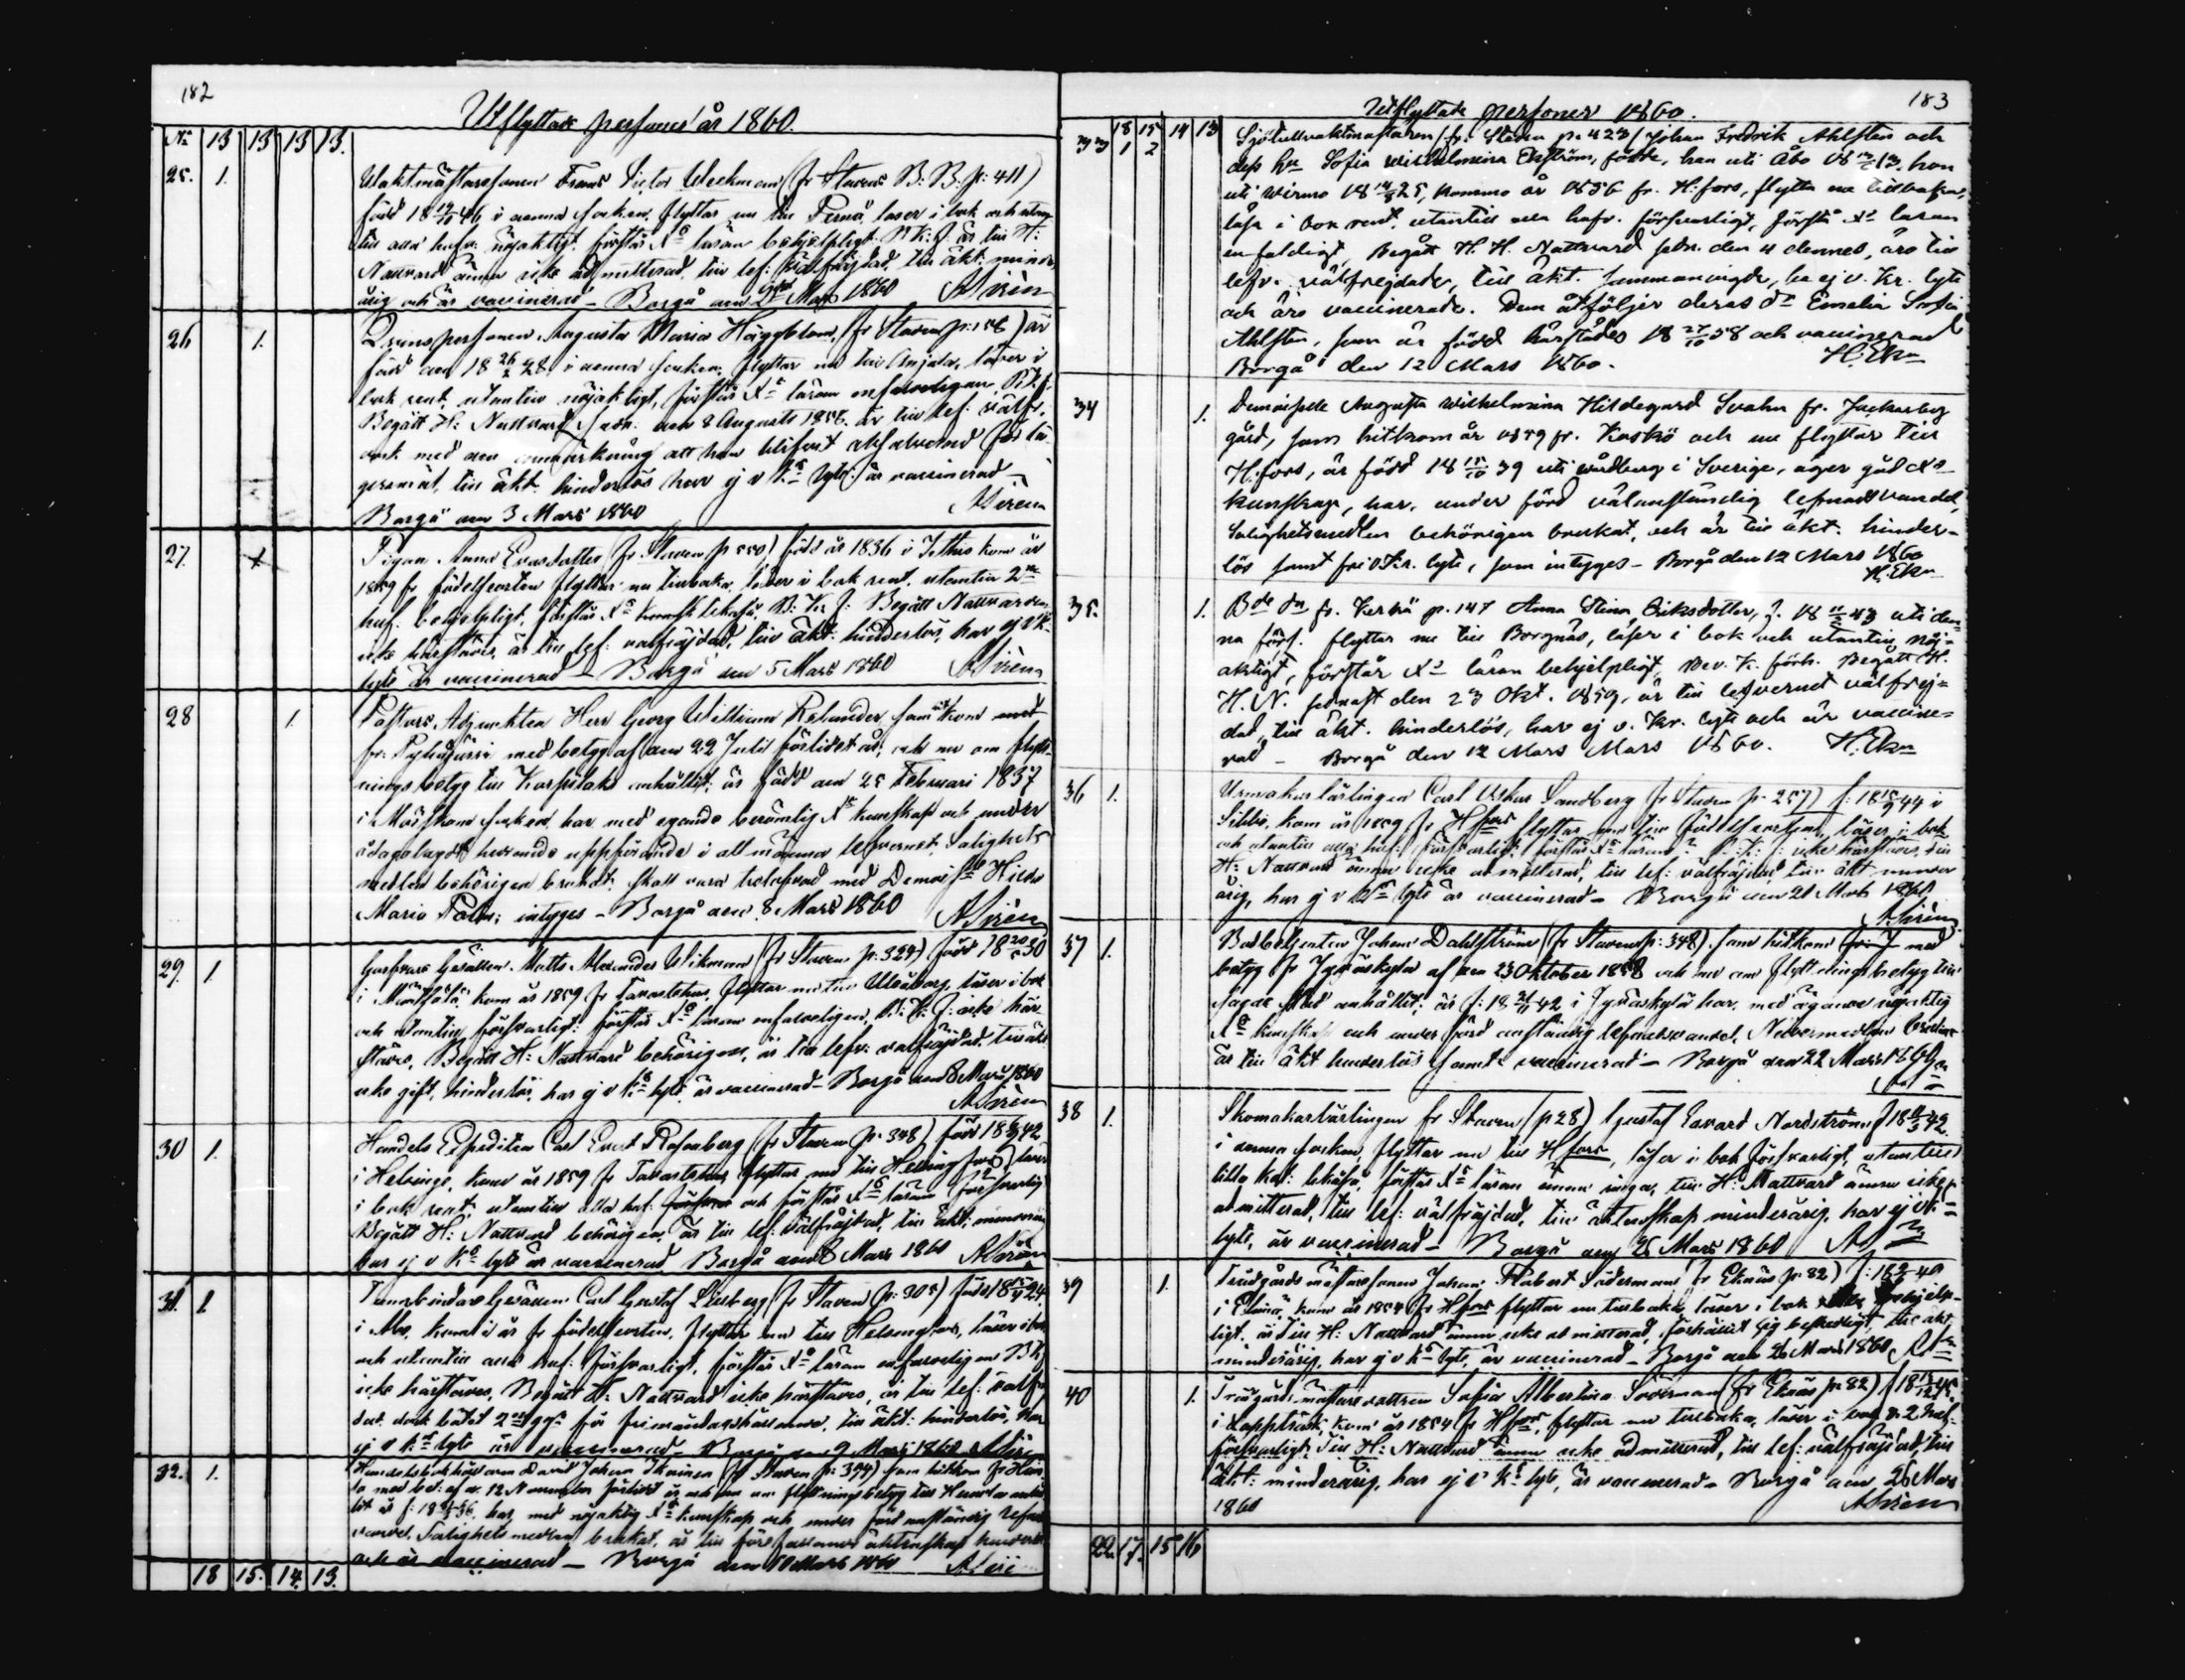 182
Utflyttade personer år 1860.
No 13 13 13 13.
25. 1. Waktmästaresonen Frans Victor Weckman (fr Staden B: B: p: 411)
född 18 19/10 46 i denna socken, flyttar nu till Pernå, läser i bok och utan-
till alla huf: nöjaktigt, förstår Xs läran behjelpligt. P. K: f: är till H:
Nattvard ännu icke admitterad, till lef: välfräjdad, till äkt: minder-
årig och är vaccinerad – Borgå den Mars 1860 A Sirén
26 1. Qvinspersonen Augusta Maria Häggblom, (fr Staden p: 158) är
född den 18 26/2 28 i denna socken, flyttar nu till Anjala, läser i
bok rent, utantill nöjaktigt, förstår Xs läran enfaldigen P. K. f.
Begått H: Nattvard sedn. den 8 Augusti 1858, är till lef: välfr.
dock med den anmärkning att hon blifvit
till äkt. hinderlös har ej v Ks lyte, är vaccinerad –
Borgå den 3 Mars 1860 A Sirén
27. 1 Pigan Anna Evasdotter (fr Staden p 550) född år 1836 i kom år
1859 fr födelseorten flyttar nu tillbaka, läser i bok rent, utantill 2ne
huf. behjelpligt, förstår Xs P: K: f: Begått Nattvarden
icke härstädes, är till lef: välfräjdad, till äkt: hinderlös, har ej v K
lyte är vaccinerad – Borgå den 5 Mars 1860 A Sirén
28 1. Pastors Adjunkten Herr Georg William Relander som kom
fr. Pyhäjärvi med betyg af den 22 Juli förlidet år, och nu om flytt-
nings betyg till Korpilaks anhållit; är född den 25 Februari 1837
i socken har med egande berömlig Xs kunskap och under
ådagalagdt hedrande uppförande i allmänna lefvernet, Salighets
medlen behörigen brukat; skall vara trolofvad med Demoislle Hilda
Maria Palm; intyges – Borgå den 8 Mars 1860 A Sirén
29. 1 Garfvare Gesällen Matts Alexander Wikman (fr Staden p: 324) född 18 20/ 30
i Mäntsälä, kom år 1859 fr Tavastehus, flyttar nu till Uleåborg, läser i bok
och utantill försvarligt: förstår Xs läran enfaldeligen, P: K: f: icke här-
städes, Begått H: Nattvard behörigen, är till lefv: välfräjdad, till äkt
icke gift, hinderlös, har ej v Ks lyte, är vaccinerad – Borgå den 8 Mars 1860
A Sirén
30 1. Handels Expediten Carl Evert Rosenberg (fr Staden p: 348) född 18 42
i Helsinge, kom år 1859 fr Tavastehus flyttar nu till Helsingfors, läser
i bok rent, utantill alla huf: och förstår Xs läran försvarlig
Begått H: Nattvard behörigen, är till lef: välfräjdad, till äkt: minderårig
har ej v Ks lyte är vaccinerad. Borgå den 8 Mars 1860 A Sirén
31. 1 Tunnbindare Gesällen Carl Gustaf (fr Staden p: 305) född 18 24
i Åbo, kom i år fr födelseorten, flyttar nu till Helsingfors, läser i bok
och utantill alla huf: försvarligt, förstår Xs läran enfaldeligen P K
icke härstädes, Begått H: Nattvard icke härstädes, är till lef: välfr
dad, dock bött 2 ggr för frimåndagshållande, till äkt: hinderlös, har
ej v Ks lyte är vaccinerad – Borgå den 9 Mars 1860 A Sirén
32. 1. David Johan (fr Staden p: 394) som hitkom fr
med bet: af d. 12 November förlidet år och nu om flyttningsbetyg till
är f: 18 36, har, med nöjaktig Xs kunskap och under förd anständig
vandel, Salighetsmedlen brukat, är till äktenskap
och är vaccinerad – Borgå den 10 Mars 1860 A Sirén
18 15. 14. 13.
183
Utflyttade personer 1860.
18 15 14 13
33 1 2 Sjötullvaktmästaren (fr. Staden p. 423) Johan Fredrik Ahlsten och
dess hu Sofia Wilhelmina Ekström, födde, han uti Åbo 18 13, hon
uti Wirmo 18 25, komne år 1856 fr. H:fors, flytta nu tillbaka,
läsa i bok rent, utantill alla hufv. försvarligt, förstå Xs läran
enfaldigt, Begått H. H. Nattvard sedn. den 4 dennes, äro till
lefv. välfrejdade, till äkt. sammanvigde, ha ej v. Kr. lyte
och äro vaccinerade. Dem åtföljer deras dr Emelia Sofia
Ahlsten, som är född härstädes 18 27/10 58 och vaccinerad
Borgå den 12 Mars 1860. H. Ekn
34 1. Demoiselle Augusta Wilhelmina Hildegard Svahn fr. Jackarby
gård, som hitkom år 1859 fr. Kaskö och nu flyttar till
H:fors, är född 18 15/10 39 uti Wårdberg i Sverige, äger god Xs
kunskap, har, under förd välanständig lefnadsvandel,
Salighetsmedlen behörigen brukat, och är till äkt. hinder-
lös samt fri v Kr. lyte, som intyges – Borgå den 12 Mars 1860
H. Ekn
35. 1. Bde dn fr. Kerkå p. 147 Anna Stina Eriksdotter, f. 18 11/ 43 uti den-
na förs. flyttar nu till Borgnäs, läser i bok och utantill nöj-
aktigt, förstår Xs läran behjelpligt, Bev. K. förh. Begått H.
H. N. sednast den 23 Okt. 1859, är till lefvernet välfrej-
dad, till äkt. hinderlös, har ej v. Kr. lyte och är vaccine-
rad – Borgå den 12 Mars Mars 1860. H. Ekn
36 1. Urmakarlärlingen Carl Oskar Sandberg (fr Staden p. 257) f: 18 15/9 44 i
Sibbo, kom år 1859 fr Hfors flyttar nu till födelseorten, läser i bok
och utantill alla huf: försvarligt, förstår Xs läran P: K: f: icke härstädes, till
H: Nattvard ännu icke admitterad, till lef: välfräjdad, till äkt minder
årig, har ej v Ks lyte är vaccinerad – Borgå den 21 Mars 1860
A. Sirén
37 1. Johan Dahlström (fr Staden p: 348) som hitkom med
betyg fr Jyväskylä af den 23 Oktober 1858 och nu om flyttningsbetyg till
sagde stad anhållit; är f: 18 21/11 42 i Jyväskylä har, med ägande nöjaktig
Xs kunskap och under förd anständig lefnadsvandel, Nådemedlen brukat
är till äkt hinderlös samt vaccinerad – Borgå den 22 Mars 1860
38 1. Skomakarlärlingen fr Staden (p 28) Gustaf Edvard Nordström f 18 11/3 42
i denna socken, flyttar nu till Hfors, läser i bok försvarligt, utantill
lilla kat: förstår Xs läran ännu ringa, till H: Nattvard ännu icke
admitterad, till lef: välfräjdad, till äktenskap minderårig, har ej v K
lyte, är vaccinerad – Borgå den 26 Mars 1860
39 1. Trädgårdsmästaresonen Johan Robert Södermann (fr Eknäs p: 82) f: 18 40
i kom år 1854 fr Hfors flyttar nu tillbaka, läser i bok behjelp-
ligt, är till H: Nattvard ännu icke admitterad, förhållit sig beskedligt, till äkt
minderårig, har ej v Ks lyte, är vaccinerad – Borgå den 26 Mars 1860
40 1. Trädgårdsmästaredottren Sofia Albertina Söderman (fr Eknäs p. 82) f 18 45
i Lappträsk, kom år 1854 fr Hfors, flyttar nu tillbaka, läser i bok o. 2 huf:
försvarligt, till H: Nattvard ännu icke admitterad, till lef: välfräjdad, till
äkt: minderårig, har ej v Ks lyte, är vaccinerad – Borgå den 26 Mars
1860 A Sirén
22. 17. 15 16